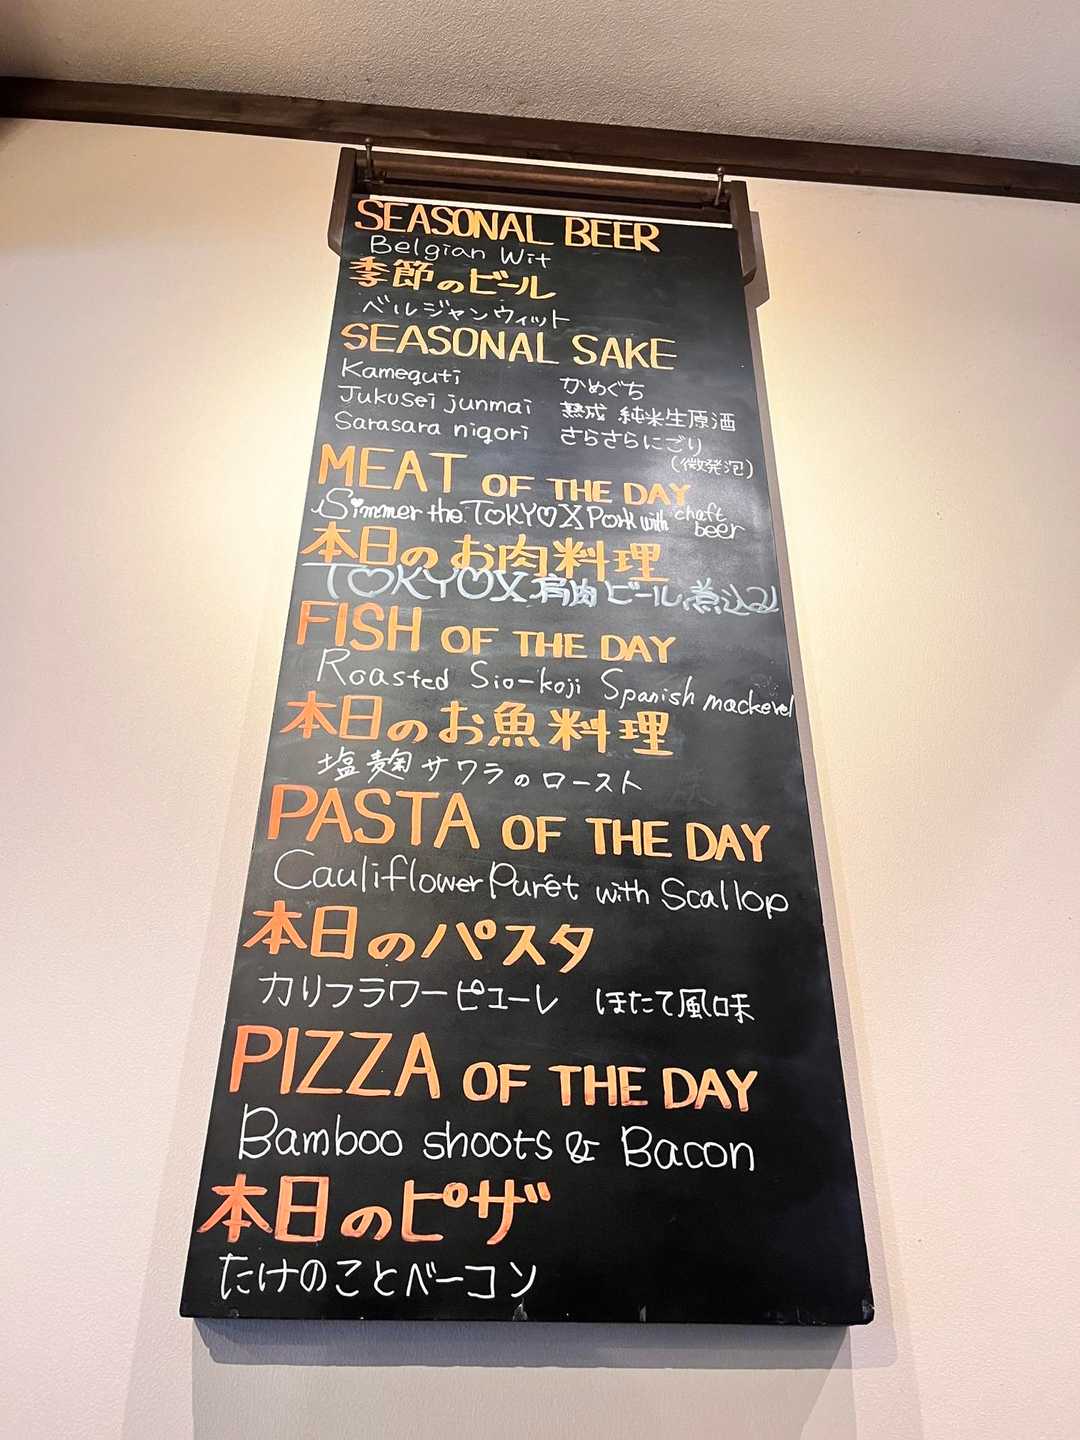 SEASONAL BEER
Belgian Wit
季節のビール
ベルジャンウィット
SEASONAL SAKE
Kameguti かめぐち
Jukusei junmai 熟成 純米生原酒
Sarasara nigori さらさらにごり
(微発泡)
MEAT OF THE DAY
Simmer the TOKYO X Pork with chaft beer
本日のお肉料理
TOKYO X 肩肉ビール煮込み
FISH OF THE DAY
Roasted Sio-koji Spanish mackerel
本日のお魚料理
塩麹サワラのロースト
PASTA OF THE DAY
Cauliflower Purét with Scallop
本日のパスタ
カリフラワーピューレ ほたて風味
PIZZA OF THE DAY
Bamboo shoots & Bacon
本日のピザ
たけのことベーコン